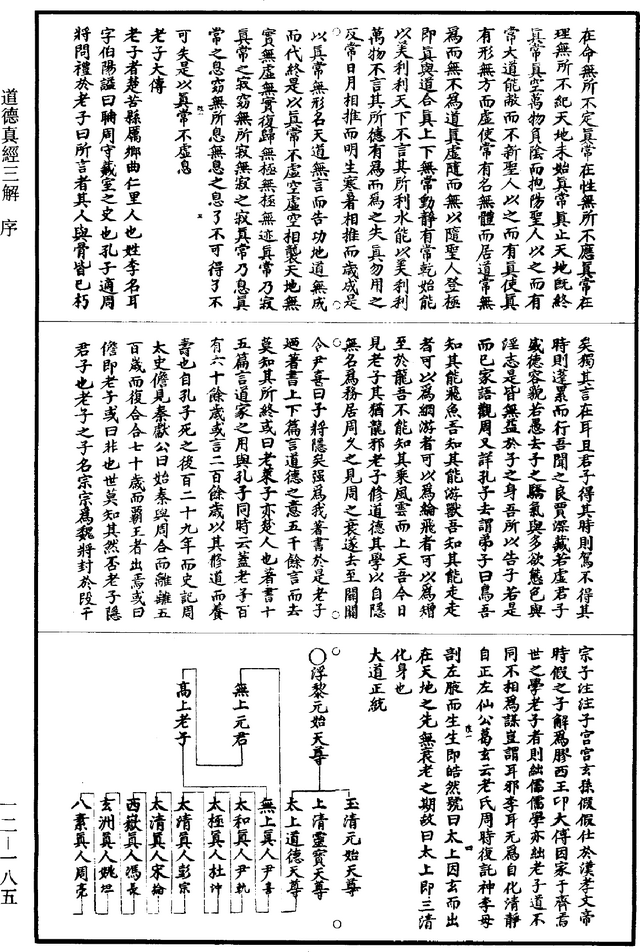 在命無所不定真常在性無所不應真常在
理無所不紀天地未始真常真止天地既終
真常真空萬物負陰而抱陽聖人以之而有
常大道能敝而不新聖人以之而有真使真
有形無方而虛使常有名無體而居道常無
為而無不為道真虛隨而無以隨聖人登極
即真與道合真上下無常動靜有常乾始能
以美利利天下不言其所利水能以美利利
萬物不言其所德有為而為之失真勿用之
反常日月相推而明生寒暑相推而歲成是
以真常無形名天道無言而告功地道無成
而代終是以真常不虛空虛空相襲天地無
實無虛無實復歸無極無極無迹真常乃寂
真常之寂窈無所寂無寂之寂真常乃息真
常之息窈無所息無息之息了不可得了不
可失是以真常不虛息
老子大傳
老子者楚苦縣厲鄉曲仁里人也姓李名耳
字伯陽謚曰聃周守藏室之史也孔子適周
將問禮於老子曰所言者其人與骨皆已朽
矣獨其言在耳且君子得其時則駕不得其
時則蓬累而行吾聞之良賈深藏若虛君子
盛德容貌若愚去子之驕氣與多欲態色與
淫志是皆無益於子之身吾所以告子若是
而已家語觀周又詳孔子去謂弟子曰鳥吾
知其能飛魚吾知其能游獸吾知其能走走
者可以為網游者可以為綸飛者可以為矰
至於龍吾不能知其乘風雲而上天吾今日
見老子其猶龍邪老子修道德其學以自隱
無名為務居周久之見周之衰遂去至關關
令尹喜曰子將隱矣強為我著書於是老子
迺著書上下篇言道德之意五千餘言而去
莫知其所終或曰老萊子亦楚人也著書十
五篇言道家之用與孔子同時云蓋老子百
有六十餘歲或言二百餘歲以其修道而養
壽也自孔子死之後百二十九年而史記周
太史儋見秦獻公曰始秦與周合而離離五
百歲而復合合七十歲而霸王者出焉或曰
儋即老子或曰非也世莫知其然否老子隱
君子也老子之子名宗宗為魏將封於段干
宗子注注子宮宮玄孫假假仕於漢孝文帝
時假之子解為膠西王卬大傅因家于齊焉
世之學老子者則絀儒儒學亦絀老子道不
同不相為謀豈謂耳邪李耳无為自化清靜
自正左仙公葛玄云老氏周時復託神李母
剖左腋而生生即皓然號曰太上因玄而出
在天地之先無衰老之期故曰太上即三清
化身也
大道正統
浮黎元始天尊
玉清元始天尊
上清靈寶天尊
太上道德天尊
無上元君
高上老子
無上真人尹喜
太和真人尹軌
太極真人杜沖
太清真人彭宗
太清真人宋倫
西嶽真人馮長
玄洲真人姚坦
八素真人周亮
道德真經三解 序
一二—一八五